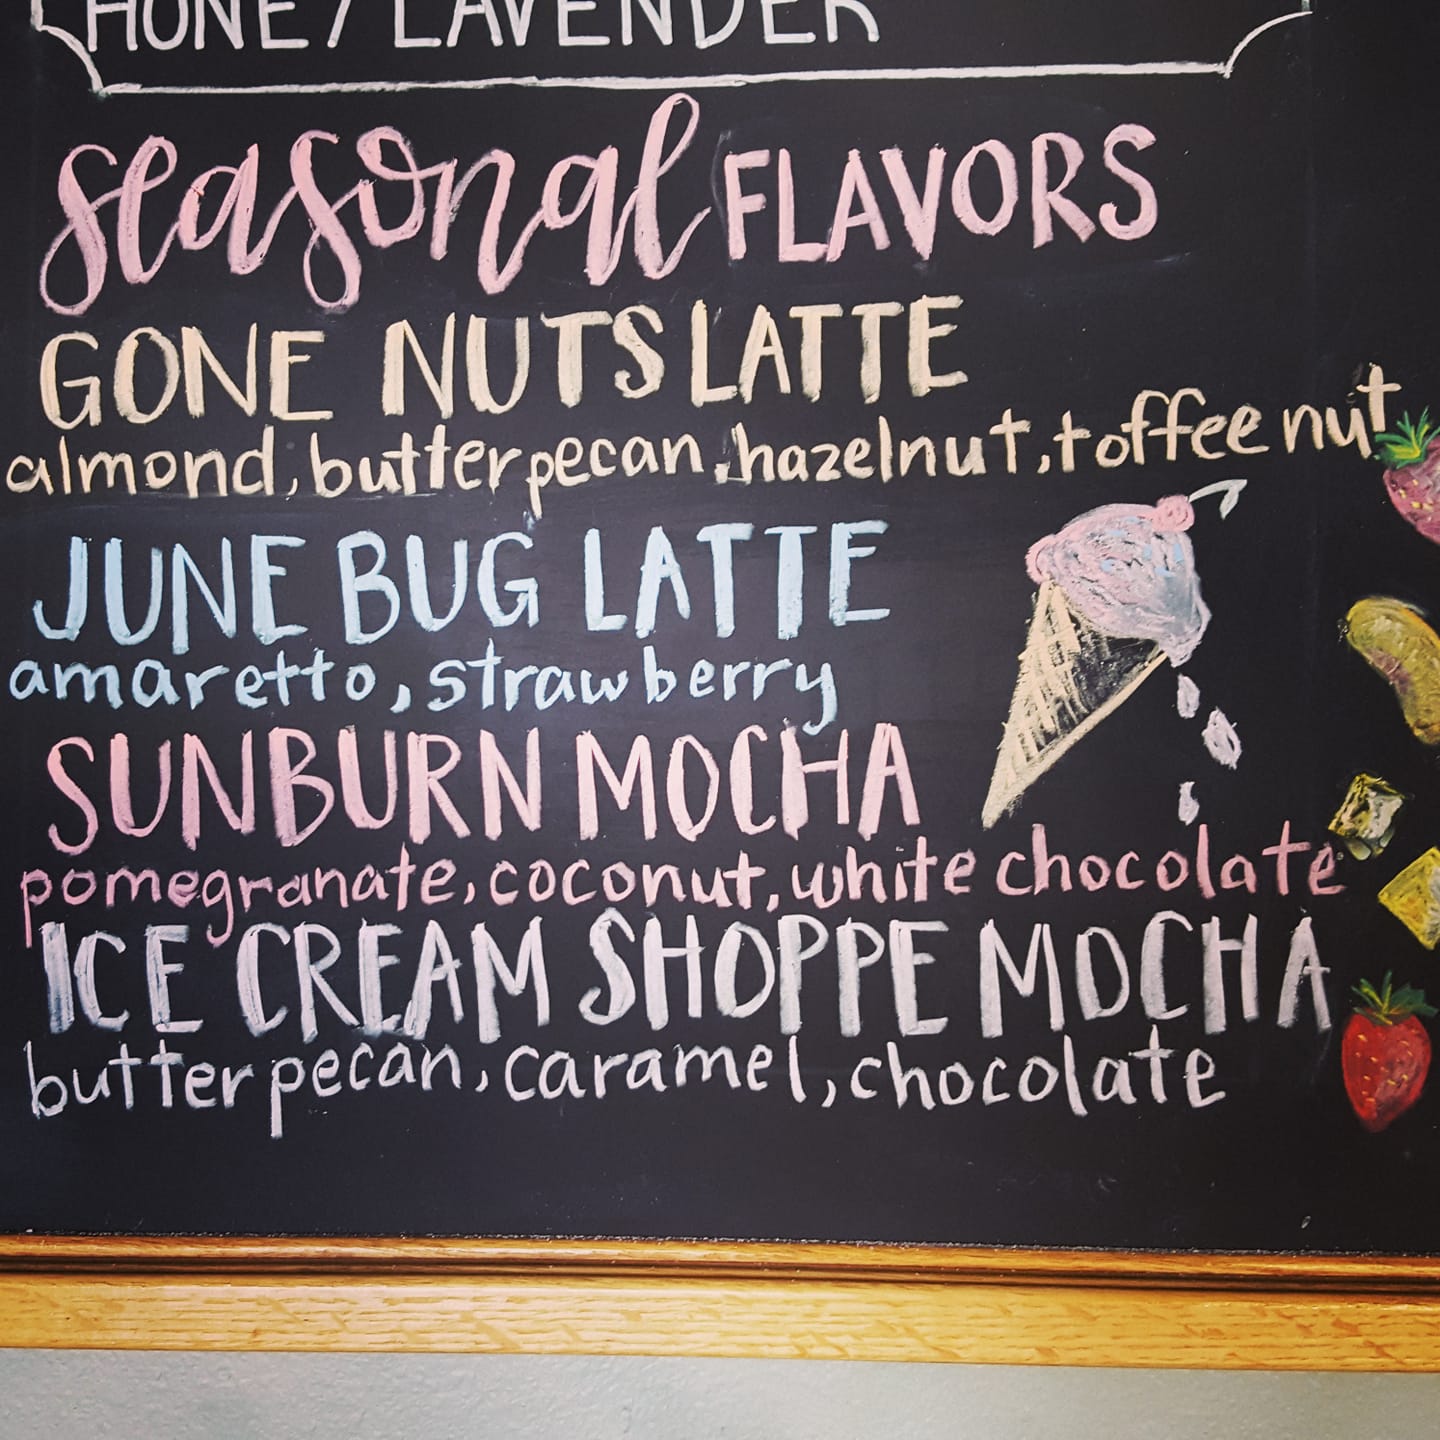 HONEY LAVENDER
seasonal FLAVORS
GONE NUTS LATTE
almond, butter pecan, hazelnut, toffee nut
JUNE BUG LATTE
amaretto, strawberry
SUNBURN MOCHA
pomegranate, coconut, white chocolate
ICE CREAM SHOPPE MOCHA
butter pecan, caramel, chocolate